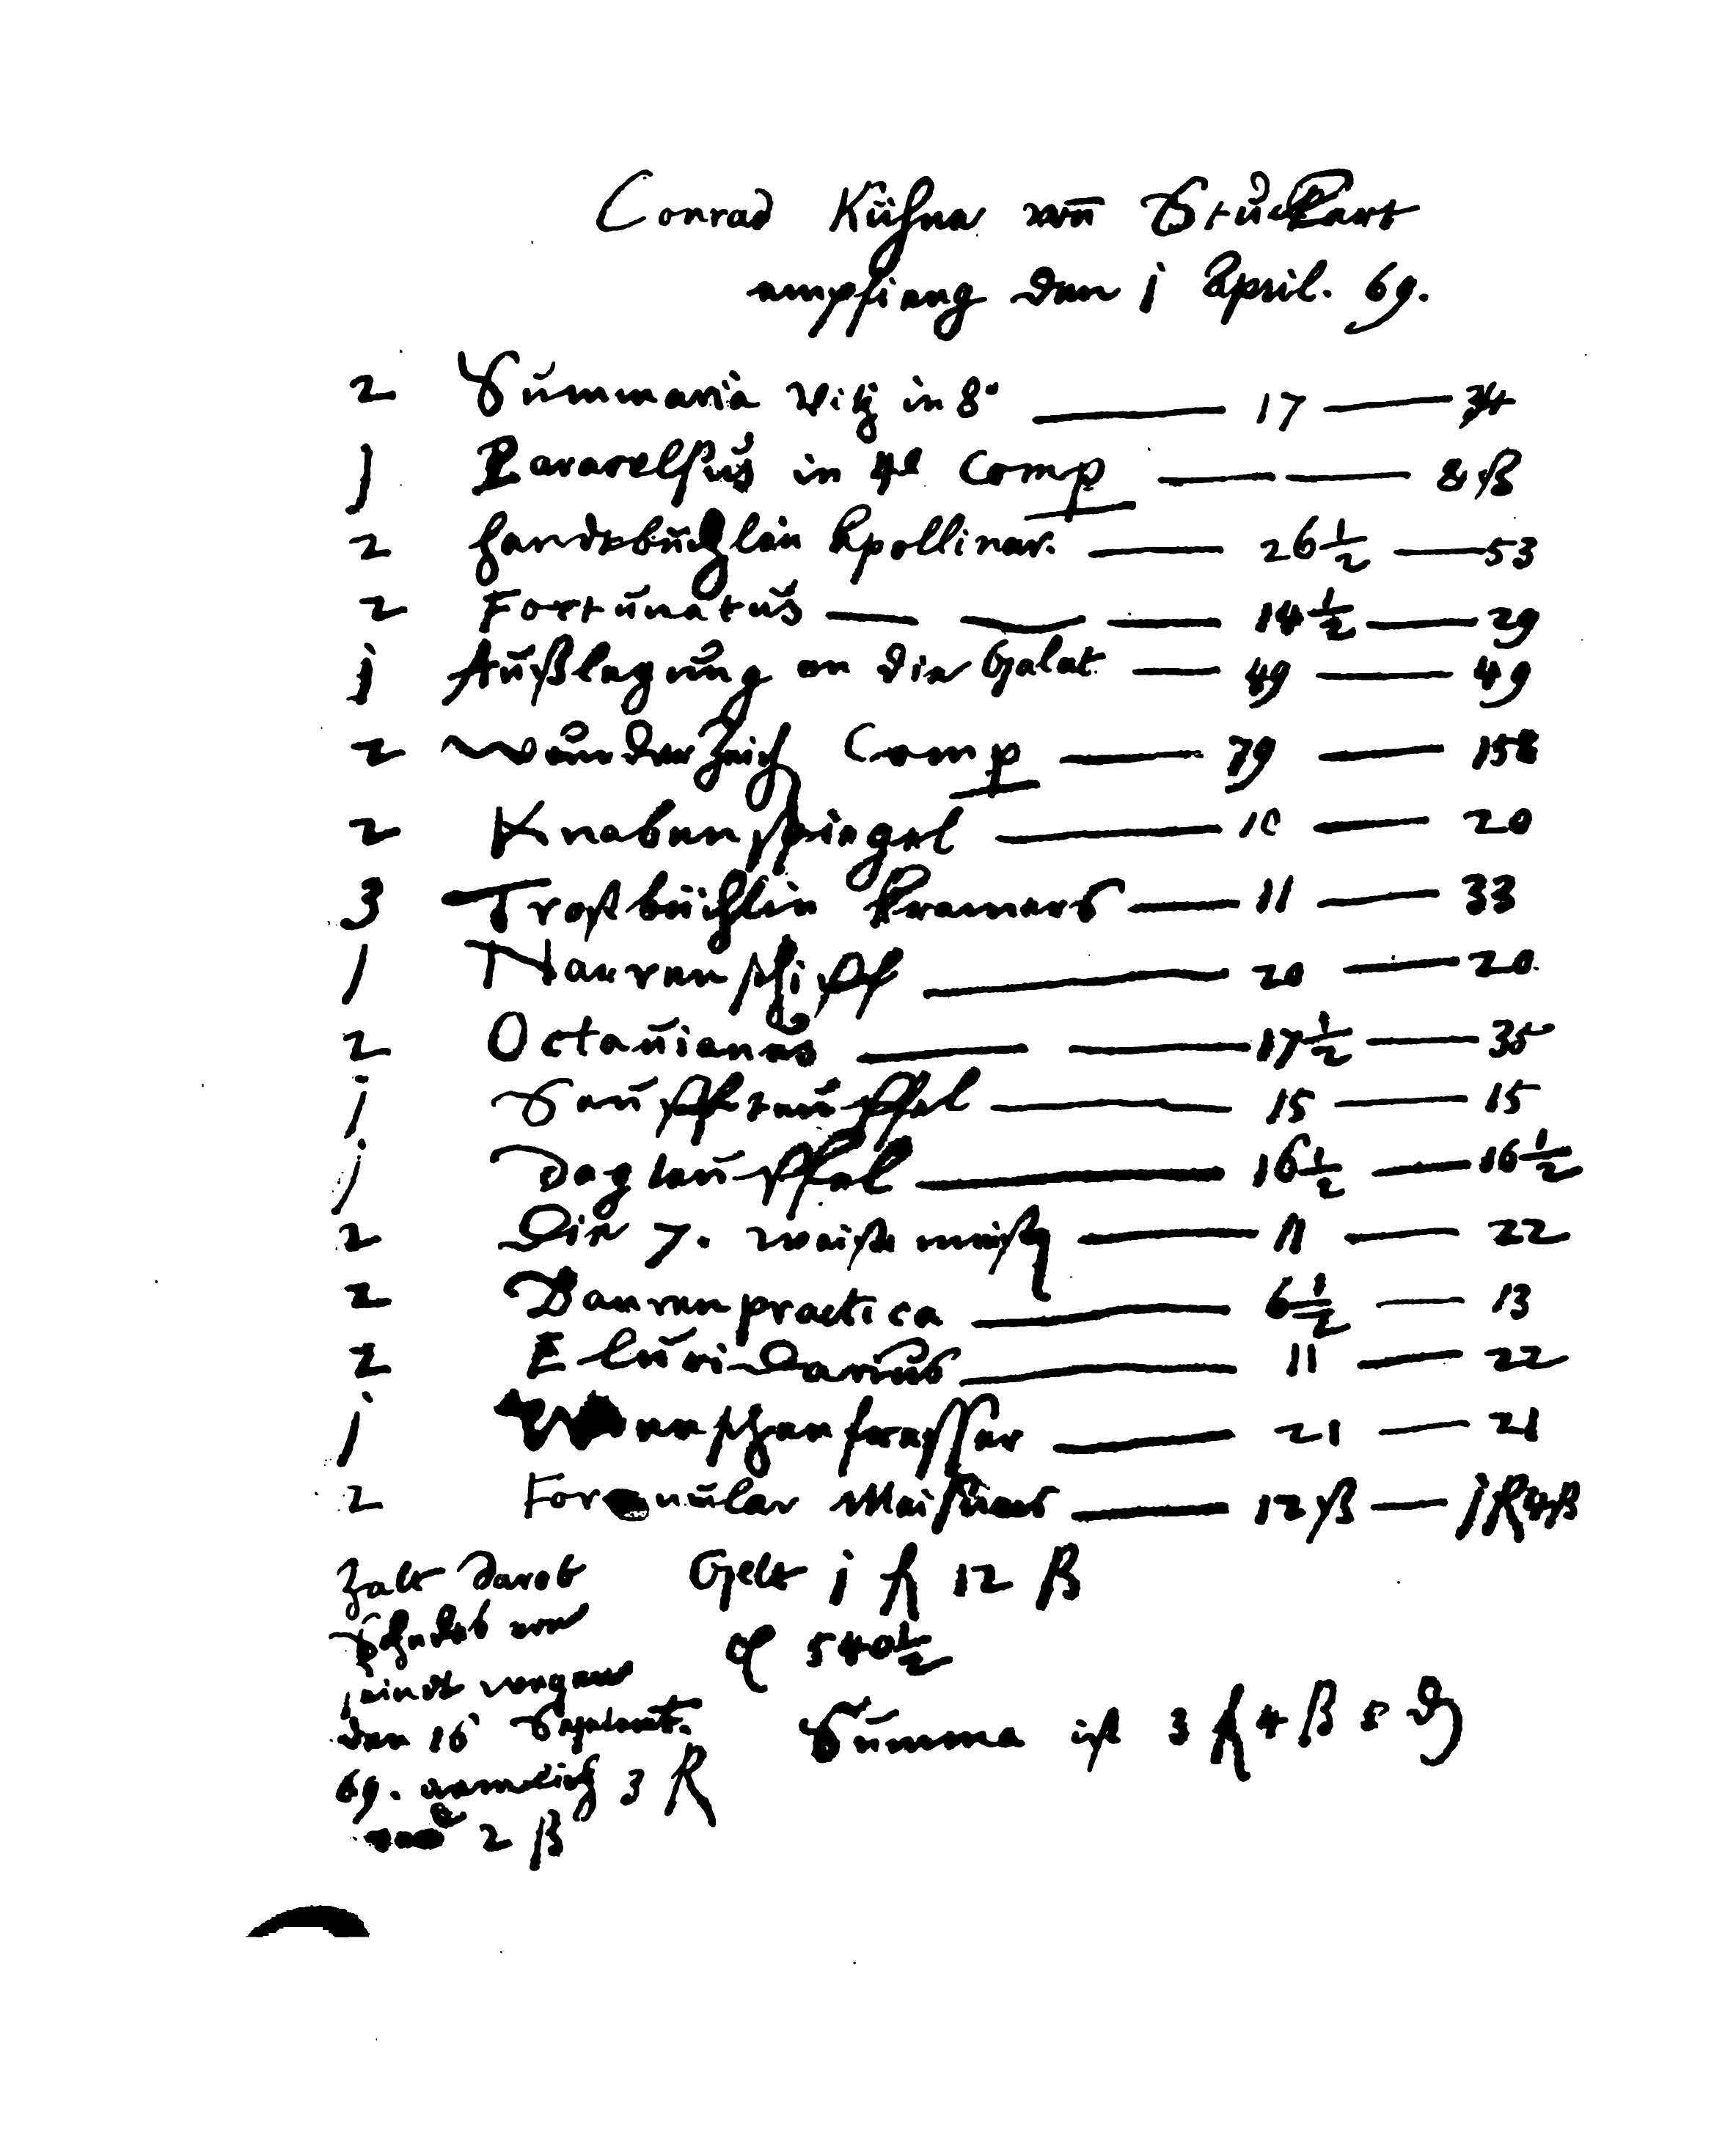 Conrad Kühne von Stuckart
empfieng den j April. 69.
2 Summaria Witz in 8° — 17 — 34
j Paracelsus in 4to Comp — — 8 ß
2 Handtbüchlein Apollinar. — 26 1/2 — 53
2 Fortunatus — — — 14 1/2 — 29
j Außlegung an die Galat. — 49 — 49
2 Wunder Zeich Comp — 79 — 158
2 Knabenspiegel — 10 — 20
3 Trostbüchlin Kremers — 11 — 33
j Narrenschiff — 20 — 20
2 Octauianus — — 17 1/2 — 35
j Saufteuffel — 15 — 15
j Dagteuffel — 16 1/2 — 16 1/2
2 Die 7. weise meist — 11 — 22
2 Bauren practica — 6 1/2 — 13
2 Elucidarius — 11 — 22
j Menschenfresser — 21 — 21
2 Formular Meisners — 12 ß — j fl 4 ß
Zalt darob Gelt j fl 12 ß
540 1/2
den 16 Septemb. Summa ist 3 fl 4 ß 5 ₰
69. nemlich 3 fl
2 ß